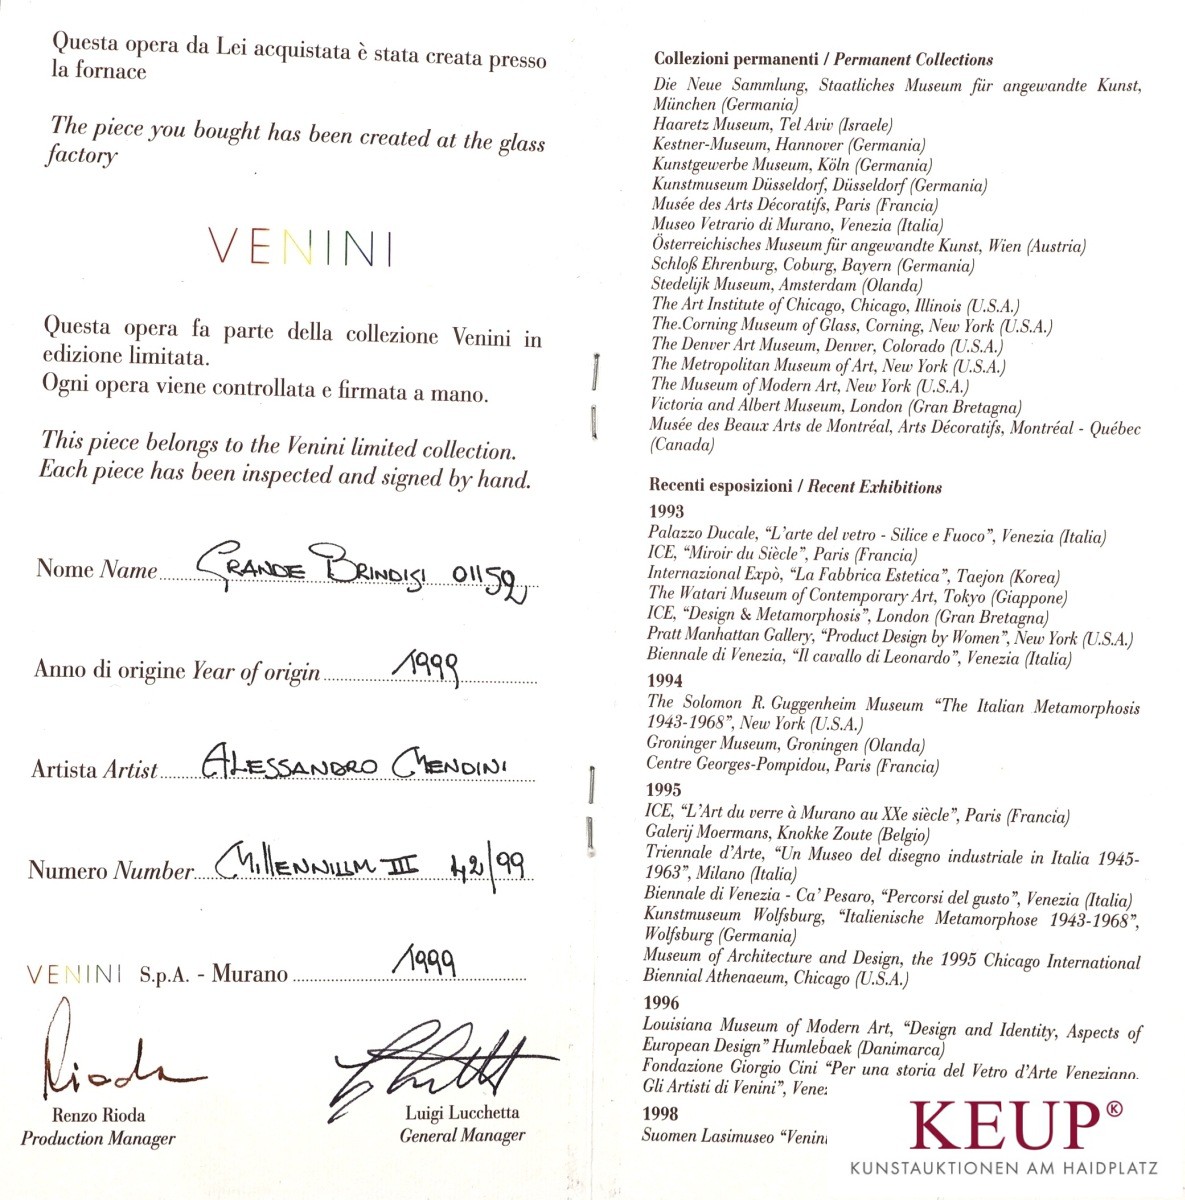 Questa opera da Lei acquistata è stata creata presso
la fornace
The piece you bought has been created at the glass
factory
VENINI
Questa opera fa parte della collezione Venini in
edizione limitata.
Ogni opera viene controllata e firmata a mano.
This piece belongs to the Venini limited collection.
Each piece has been inspected and signed by hand.
Nome Name GRANDE BRINDISI 01152
Anno di origine Year of origin 1999
Artista Artist ALESSANDRO MENDINI
Numero Number MILLENNIUM III 42/99
VENINI S.p.A. - Murano 1999
Rioda
Renzo Rioda
Production Manager
Luigi Lucchetta
General Manager
Collezioni permanenti / Permanent Collections
Die Neue Sammlung, Staatliches Museum für angewandte Kunst,
München (Germania)
Haaretz Museum, Tel Aviv (Israele)
Kestner-Museum, Hannover (Germania)
Kunstgewerbe Museum, Köln (Germania)
Kunstmuseum Düsseldorf, Düsseldorf (Germania)
Musée des Arts Décoratifs, Paris (Francia)
Museo Vetrario di Murano, Venezia (Italia)
Österreichisches Museum für angewandte Kunst, Wien (Austria)
Schloß Ehrenburg, Coburg, Bayern (Germania)
Stedelijk Museum, Amsterdam (Olanda)
The Art Institute of Chicago, Chicago, Illinois (U.S.A.)
The.Corning Museum of Glass, Corning, New York (U.S.A.)
The Denver Art Museum, Denver, Colorado (U.S.A.)
The Metropolitan Museum of Art, New York (U.S.A.)
The Museum of Modern Art, New York (U.S.A.)
Victoria and Albert Museum, London (Gran Bretagna)
Musée des Beaux Arts de Montréal, Arts Décoratifs, Montréal - Québec
(Canada)
Recenti esposizioni / Recent Exhibitions
1993
Palazzo Ducale, “L'arte del vetro - Silice e Fuoco”, Venezia (Italia)
ICE, “Miroir du Siècle”, Paris (Francia)
Internazional Expò, “La Fabbrica Estetica”, Taejon (Korea)
The Watari Museum of Contemporary Art, Tokyo (Giappone)
ICE, “Design & Metamorphosis”, London (Gran Bretagna)
Pratt Manhattan Gallery, “Product Design by Women”, New York (U.S.A.)
Biennale di Venezia, “Il cavallo di Leonardo”, Venezia (Italia)
1994
The Solomon R. Guggenheim Museum “The Italian Metamorphosis
1943-1968”, New York (U.S.A.)
Groninger Museum, Groningen (Olanda)
Centre Georges-Pompidou, Paris (Francia)
1995
ICE, “L'Art du verre à Murano au XXe siècle”, Paris (Francia)
Galerij Moermans, Knokke Zoute (Belgio)
Triennale d'Arte, “Un Museo del disegno industriale in Italia 1945-
1963”, Milano (Italia)
Biennale di Venezia - Ca' Pesaro, “Percorsi del gusto”, Venezia (Italia)
Kunstmuseum Wolfsburg, “Italienische Metamorphose 1943-1968”,
Wolfsburg (Germania)
Museum of Architecture and Design, the 1995 Chicago International
Biennial Athenaeum, Chicago (U.S.A.)
1996
Louisiana Museum of Modern Art, “Design and Identity, Aspects of
European Design” Humlebaek (Danimarca)
Fondazione Giorgio Cini “Per una storia del Vetro d'Arte Veneziano.
Gli Artisti di Venini”,
1998
Suomen Lasimuseo
KEUP®
KUNSTAUKTIONEN AM HAIDPLATZ